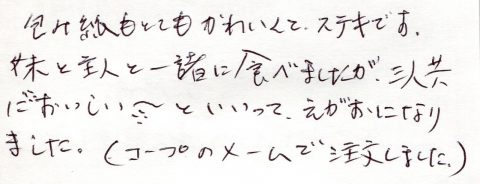 包み紙もとてもかわいくて、ステキです。
妹と主人と一諸に食べましたが、三人共
に"おいしい〜"といいって、えがおになり
ました。(コープのメームで注文しました。)